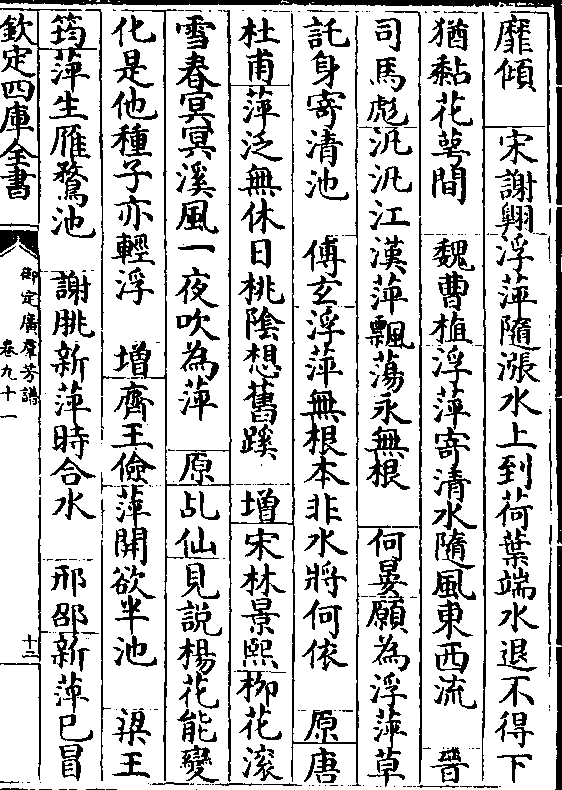 靡傾　宋謝翱浮萍隨漲水上到荷葉端水退不得下
猶黏花萼間　魏曹植浮萍寄清水隨風東西流　晉
司馬彪汎汎江漢萍飄蕩永無根　何晏願為浮萍草
託身寄清池　傅玄浮萍無根本非水將何依　原唐
杜甫萍泛無休日桃陰想舊蹊　增宋林景熙柳花滚
雪春冥冥溪風一夜吹為萍　原乩仙見說楊花能變
化是他種子亦輕浮　增齊王儉萍開欲半池　梁王
筠萍生雁鶩池　謝朓新萍時合水　邢邵新萍已冒
欽定四庫全書
御定廣羣芳譜
卷九十一
十二